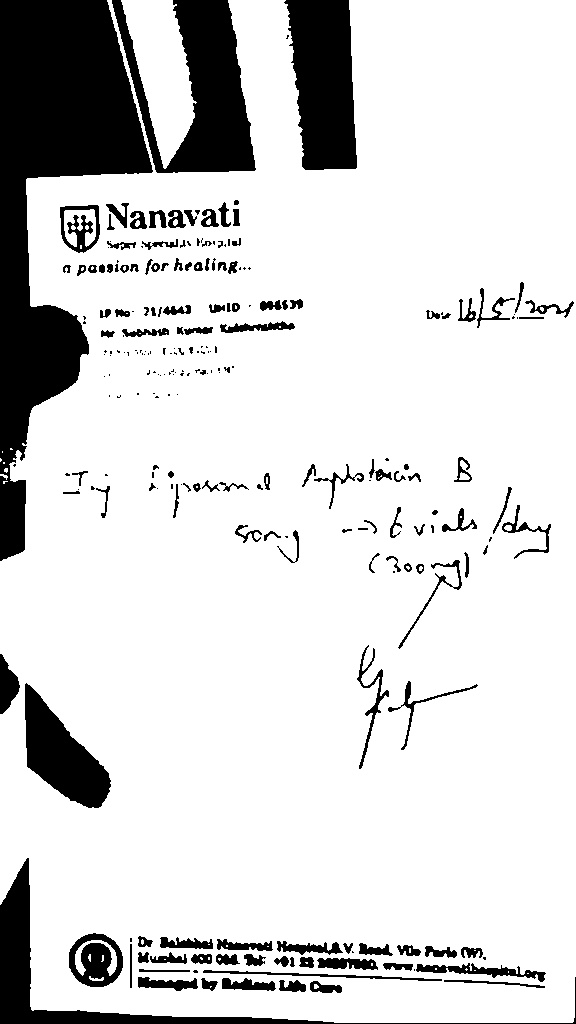 Nanavati
Super Speciality Hospital
a passion for healing...
IP No: 21/4643 UHID : 096539
Mr Subhash Kumar
Date 16/5/2021
Inj Liposomal Amphotericin B
50mg → 6 vials/day
(300mg)
Dr Balabhai Nanavati Hospital, S.V. Road, Vile Parle (W),
Mumbai 400 056. Tel: +91 22 www.nanavatihospital.org
Managed by Radiant Life Care